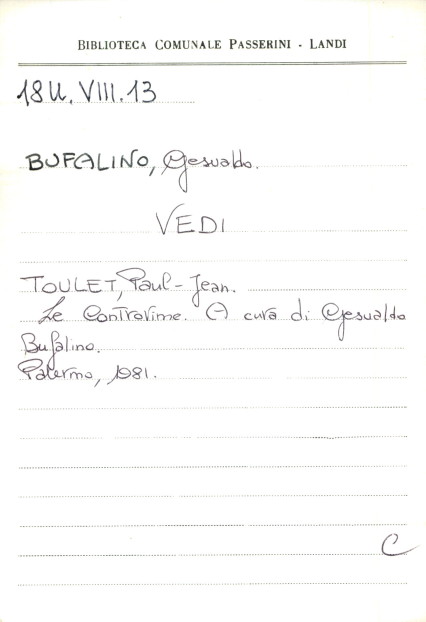 BIBLIOTECA COMUNALE PASSERINI - LANDI
18U. VIII. 13
BUFALINO, Gesualdo.
VEDI
TOULET, Paul-Jean.
Le Controrime. A cura di Gesualdo
Bufalino.
Palermo, 1981.
C